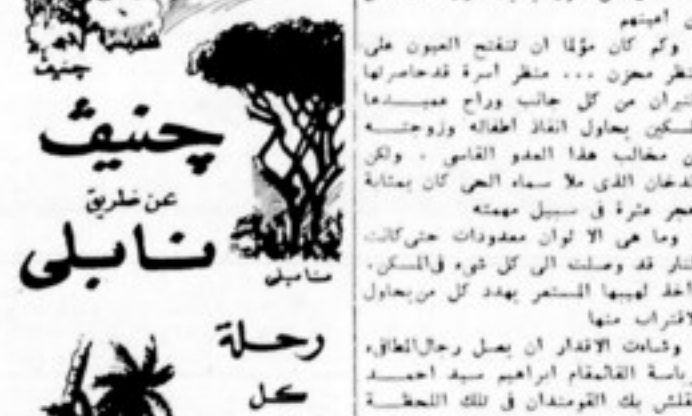 اعينهم
وكم كان مؤلما ان تتفتح العيون على
منظر محزن ... منظر أسرة قد حاصرتها
النيران من كل جانب وراح عميدها
يحاول انقاذ اطفاله وزوجته
من مخالب هذا العدو القاسى ، ولكن
الدخان الذى ملا سماء الحى كان بمثابة
حجر عثرة فى سبيل مهمته
وما هى الا ثوان معدودات حتى كانت
النار قد وصلت الى كل شىء فى المسكن ،
واخذ لهيبها المستعر يهدد كل من يحاول
الاقتراب منها
وشاءت الاقدار ان يصل رجال المطافىء
برياسة القائمقام ابراهيم سيد احمد
بك القومندان فى تلك اللحظة
چنيڤ
چنيڤ
عن طريق
نابلى
نابلى
رحلة
كل